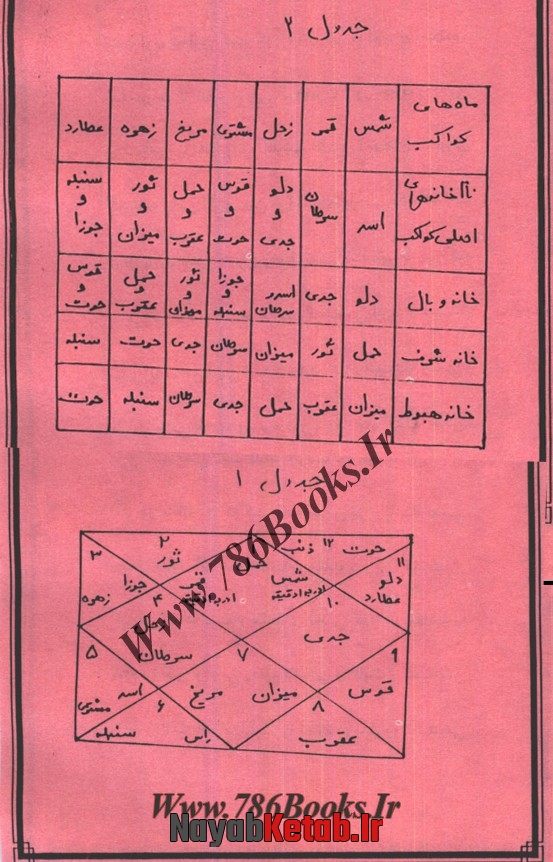 جدول ۲
ماه های کواکب شمس قمر زحل مشتری مریخ زهره عطارد
خانه های اصلی کواکب اسد سرطان دلو و جدی قوس و حوت حمل و عقرب ثور و میزان سنبله و جوزا
خانه وبال دلو جدی اسد و سرطان جوزا و سنبله ثور و میزان حمل و عقرب قوس و حوت
خانه شرف حمل ثور میزان سرطان جدی حوت سنبله
خانه هبوط میزان عقرب حمل جدی سرطان سنبله حوت
جدول ۱
حوت ۱۲ ذنب
۲ ثور
۳
۱۱ دلو
عطارد
حمل
شمس
قمر
جوزا
زهره
۴
۱۰
جدی
زحل
سرطان
۵
۷
۹
قوس
میزان
مریخ
اسد
مشتری
۶
۸
عقرب
راس
سنبله
Www.786Books.Ir
Www.786Books.Ir
NayabKetab.Ir